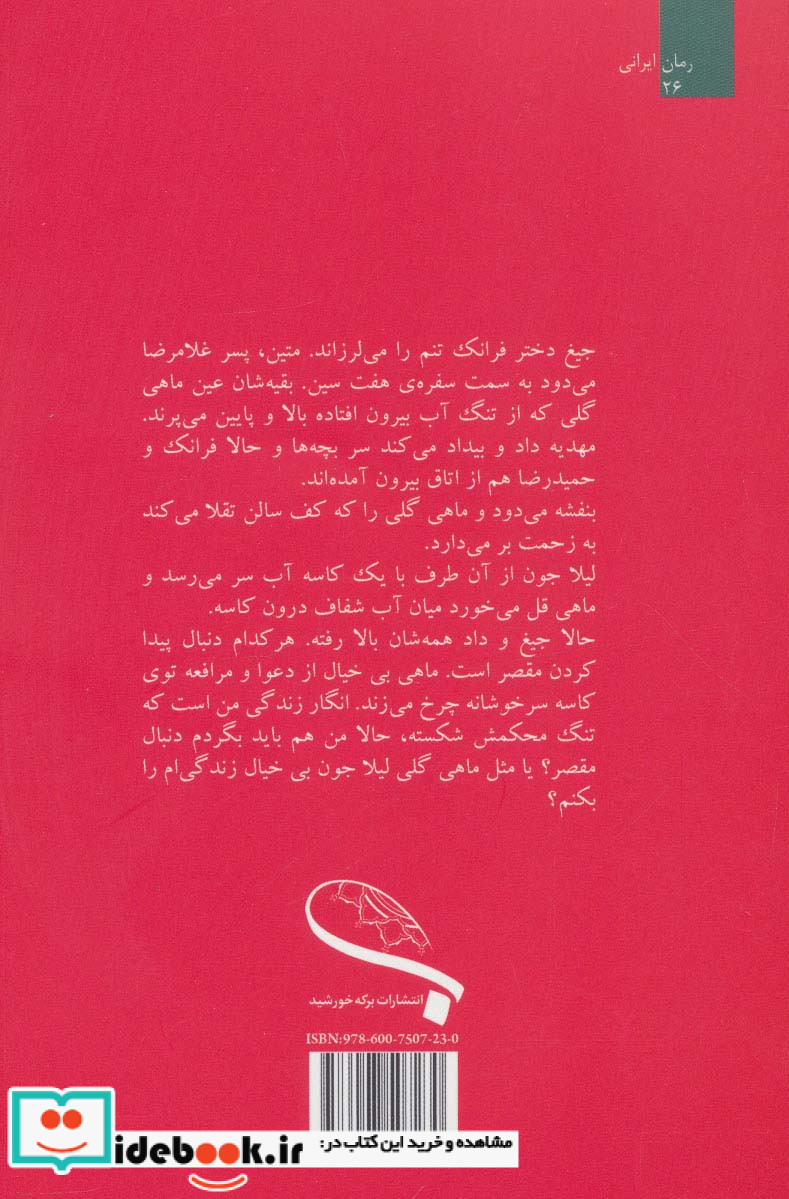 رمان ایرانی
۲۶
جیغ دختر فرانک تنم را می‌لرزاند. متین، پسر غلامرضا
می‌دود به سمت سفره‌ی هفت سین. بقیه‌شان عین ماهی
گلی که از تنگ آب بیرون افتاده بالا و پایین می‌پرند.
مهدیه داد و بیداد می‌کند سر بچه‌ها و حالا فرانک و
حمیدرضا هم از اتاق بیرون آمده‌اند.
بنفشه می‌دود و ماهی گلی را که کف سالن تقلا می‌کند
به زحمت بر می‌دارد.
لیلا جون از آن طرف با یک کاسه آب سر می‌رسد و
ماهی قل می‌خورد میان آب شفاف درون کاسه.
حالا جیغ و داد همه‌شان بالا رفته. هرکدام دنبال پیدا
کردن مقصر است. ماهی بی خیال از دعوا و مرافعه توی
کاسه سرخوشانه چرخ می‌زند. انگار زندگی من است که
تنگ محکمش شکسته، حالا من هم باید بگردم دنبال
مقصر؟ یا مثل ماهی گلی لیلا جون بی خیال زندگی‌ام را
بکنم؟
انتشارات برکه خورشید
ISBN:978-600-7507-23-0
مشاهده و خرید این کتاب در:
idebook.ir